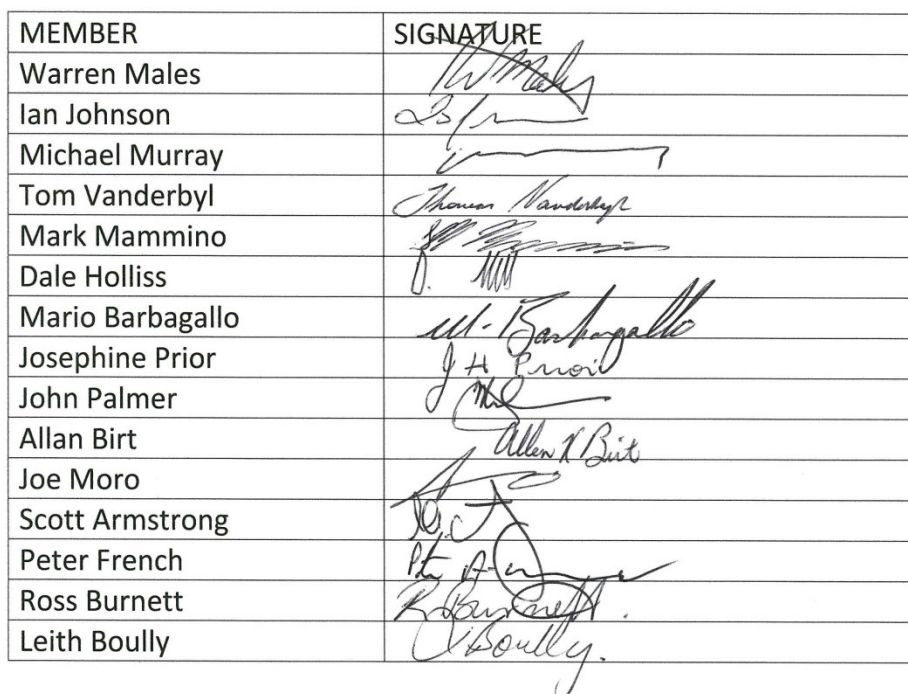 MEMBER SIGNATURE
Warren Males W Males
Ian Johnson
Michael Murray
Tom Vanderbyl Thomas Vanderbyl
Mark Mammino
Dale Holliss D.
Mario Barbagallo M. Barbagallo
Josephine Prior J H Prior
John Palmer
Allan Birt Allen K Birt
Joe Moro
Scott Armstrong
Peter French
Ross Burnett R Burnett.
Leith Boully L Boully.